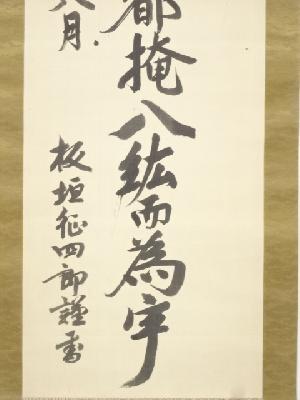 都掩八紘而為宇
八月
板垣征四郎謹書